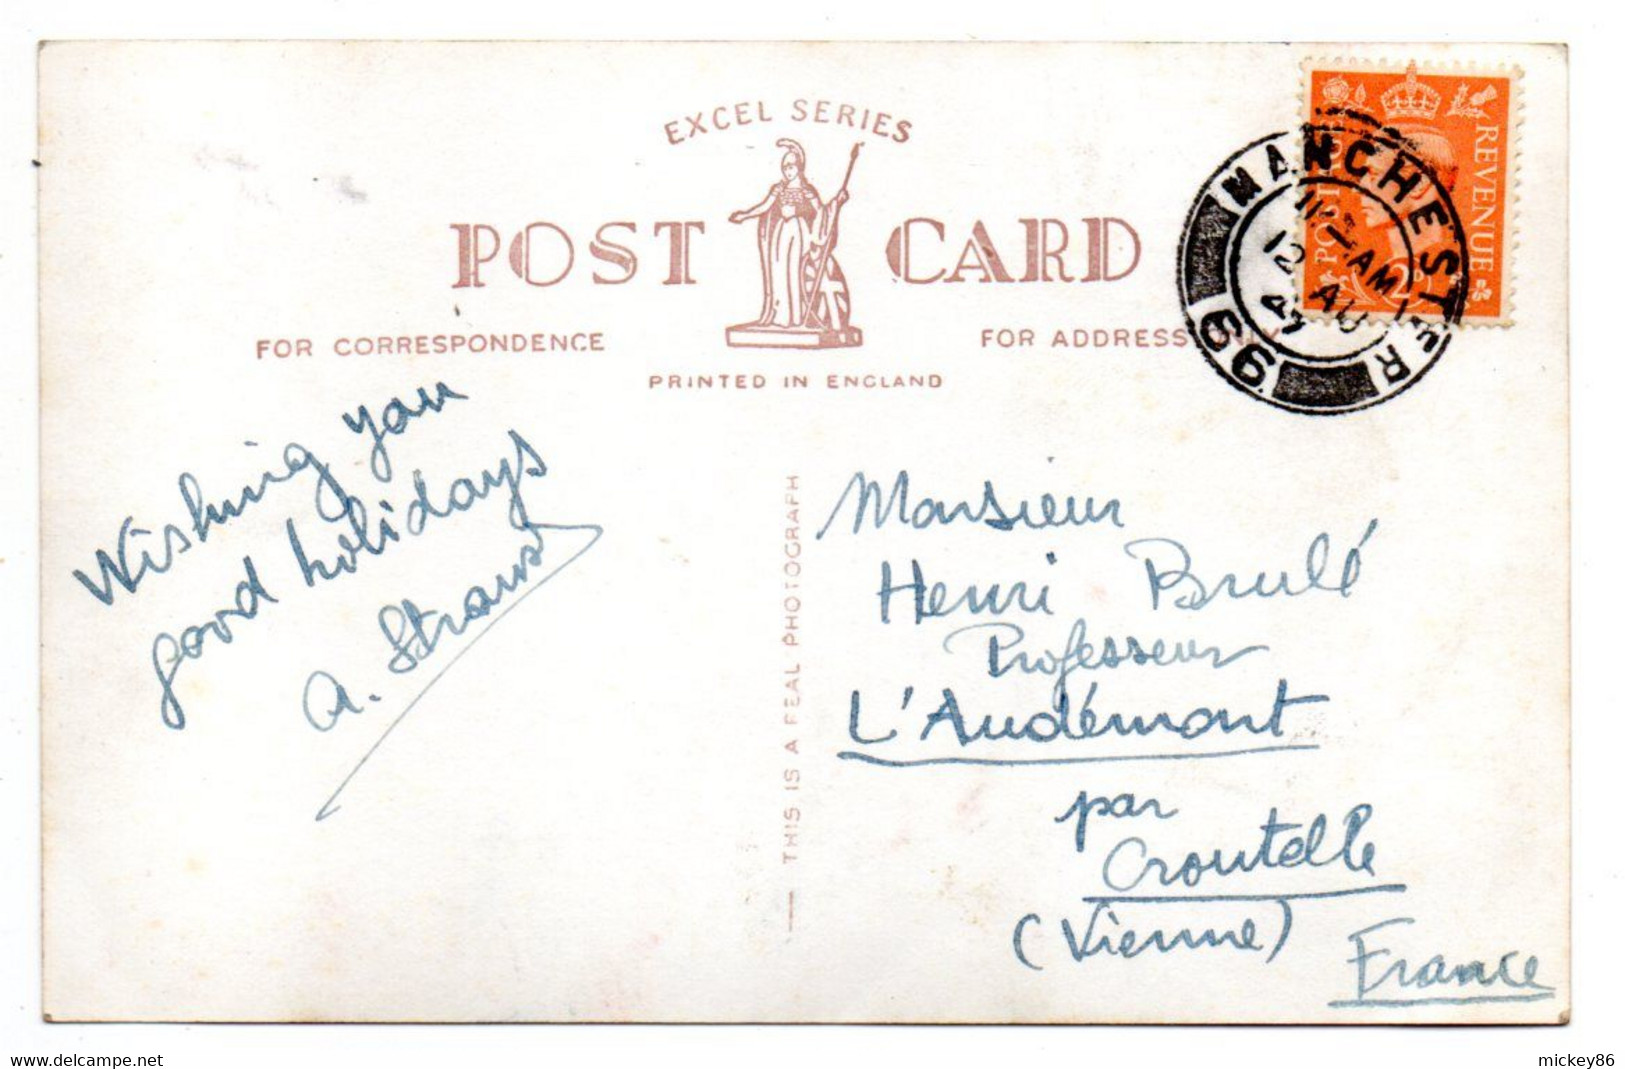 EXCEL SERIES
POST CARD
FOR CORRESPONDENCE
FOR ADDRESS
PRINTED IN ENGLAND
THIS IS A REAL PHOTOGRAPH
Wishing you
good holidays
A. Straus
Monsieur
Henri Brulé
Professeur
L'Audémont
par
Croutelle
(Vienne)
France
POSTAGE
REVENUE
MANCHESTER
AM
12 AU
47
99
mickey86